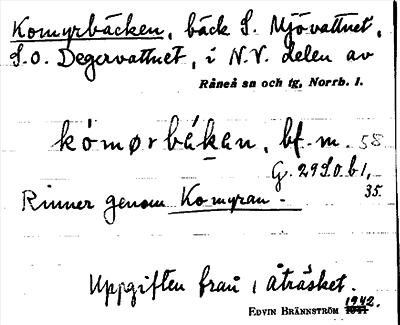 Komyrbäcken, bäck S. Mjövattnet,
S.O. Degervattnet, i N.V. delen av
Råneå sn och tg, Norrb. l.
kómørbákan, bf. m. 58
G. 29 S.O. b 1,
35.
Rinner genom Komyran.
Uppgiften från i åträsket.
1942.
EDVIN BRÄNNSTRÖM 1941